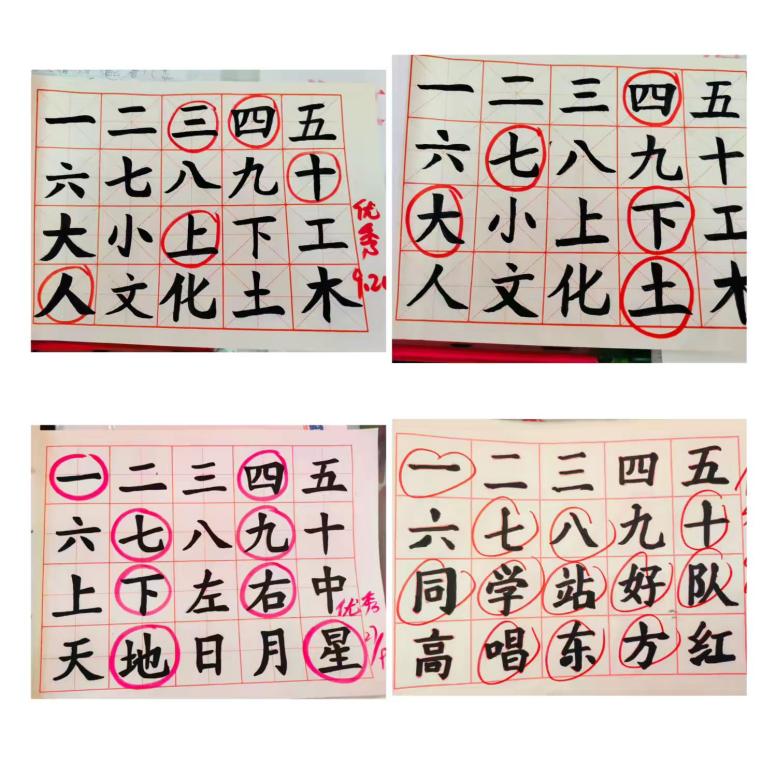 一二三四五
六七八九十
大小上下工
人文化土木
优秀
9.21
一二三四五
六七八九十
大小上下工
人文化土木
一二三四五
六七八九十
上下左右中
天地日月星
优秀
一二三四五
六七八九十
同学站好队
高唱东方红